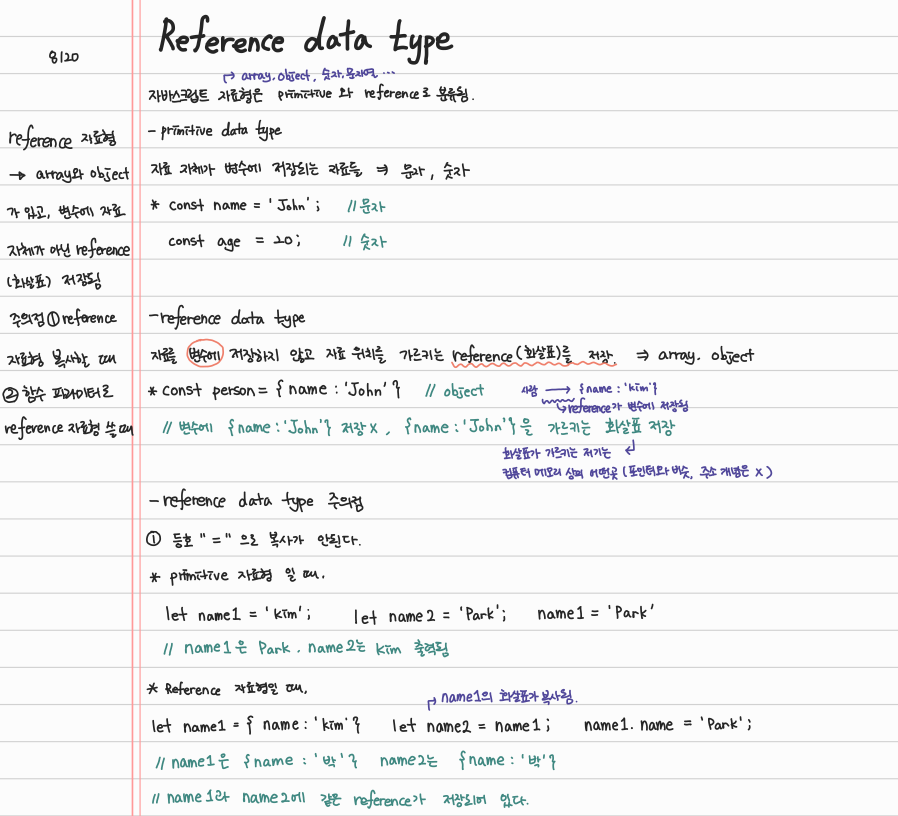 Reference data type
8/20
→ array, object, 숫자, 문자열 ...
자바스크립트 자료형은 primitive 와 reference로 분류됨.
reference 자료형
→ array와 object
가 있고, 변수에 자료
자체가 아닌 reference
(화살표) 저장됨
주의점 ① reference
자료형 복사할 때
② 함수 파라미터로
reference 자료형 쓸 때
- primitive data type
자료 자체가 변수에 저장되는 자료들 ⇒ 문자, 숫자
* const name = 'John'; //문자
const age = 20; // 숫자
- reference data type
자료를 변수에 저장하지 않고 자료 위치를 가르키는 reference(화살표)를 저장. ⇒ array. object
* const person = { name : 'John' } // object
사람 → {name : 'kim'}
reference가 변수에 저장됨
// 변수에 {name : 'John'} 저장 X , {name : 'John'}을 가르키는 화살표 저장
화살표가 가르키는 저기는
컴퓨터 메모리 상의 어떤곳 (포인터와 비슷, 주소 개념은 X)
- reference data type 주의점
① 등호 "=" 으로 복사가 안된다.
* primitive 자료형 일 때.
let name1 = 'kim'; let name2 = 'Park'; name1 = 'Park'
// name1은 Park . name2는 kim 출력됨
* Reference 자료형일 때,
→ name1의 화살표가 복사됨.
let name1 = { name : 'kim' } let name2 = name1 ; name1. name = 'Park';
// name1은 {name : '박'} name2는 {name : '박'}
// name1과 name2에 같은 reference가 저장되어 있다.